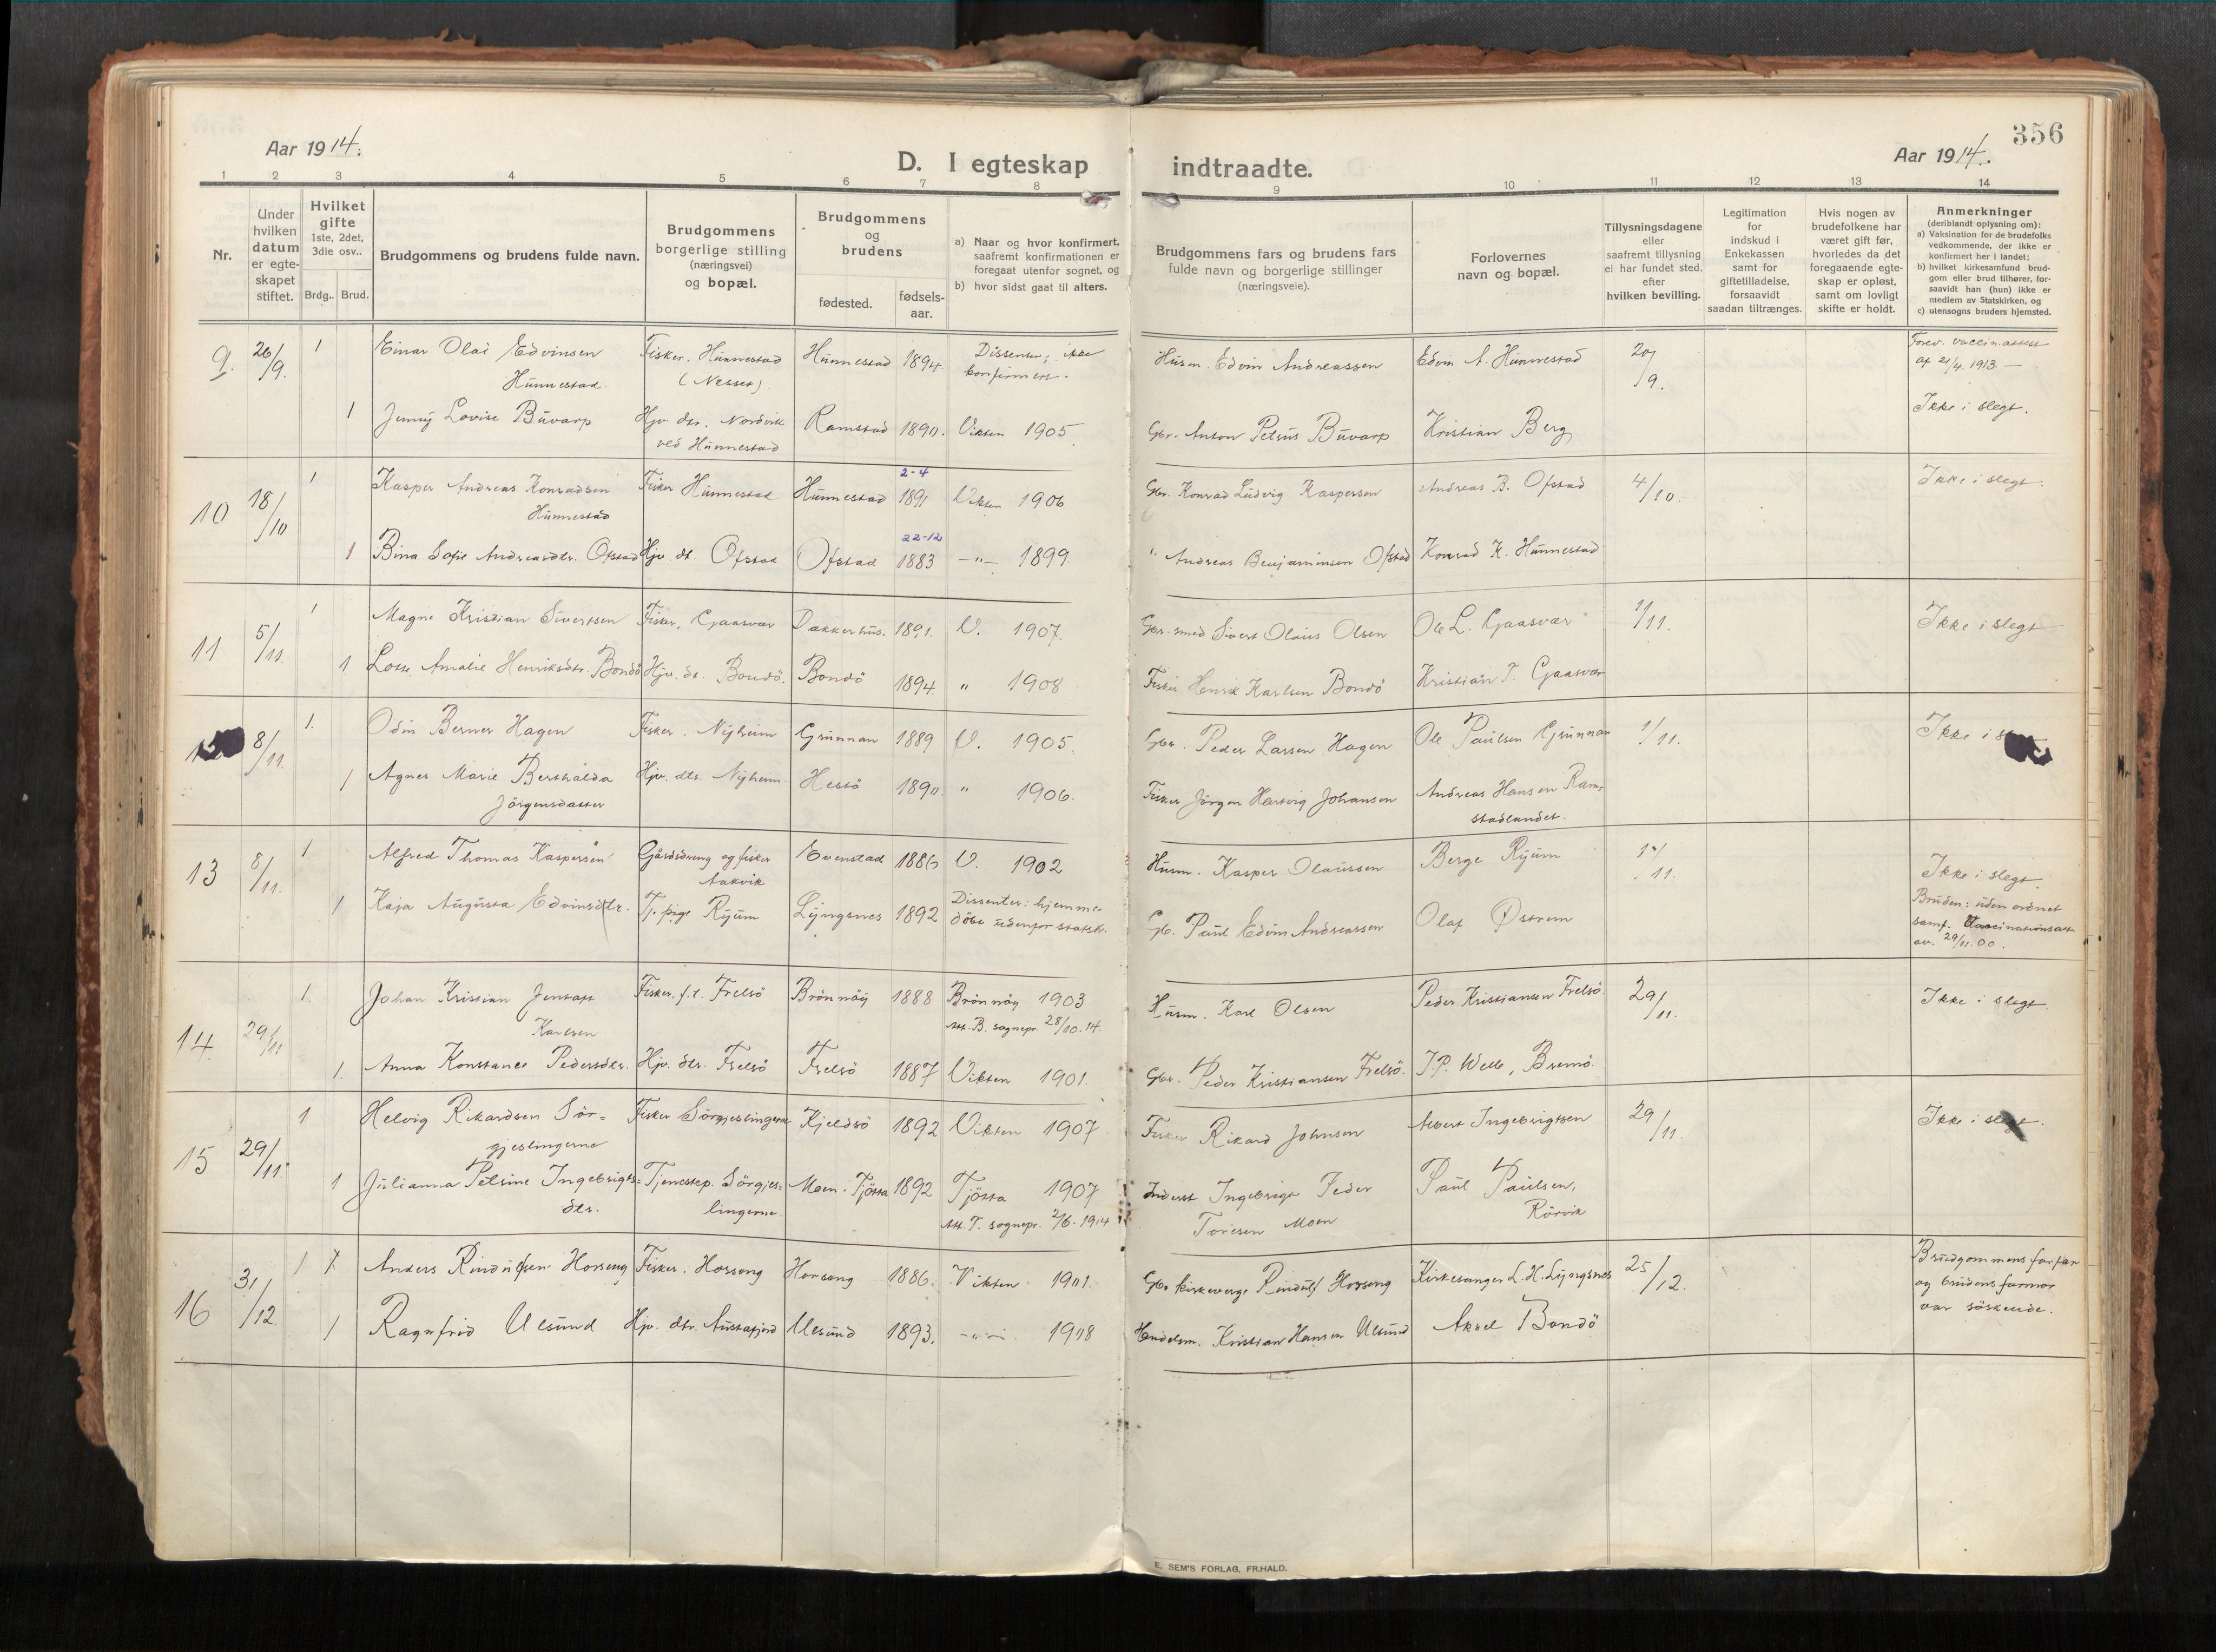 356
Aar 1914.
Aar 1914.
D. I egteskap indtraadte.
1 2 3 4 5 6 7 8 9 10 11 12 13 14
Nr.
Under
hvilken
datum
er egte-
skapet
stiftet.
Hvilket
gifte
1ste, 2det,
3die osv..
Brdg.. Brud.
Brudgommens og brudens fulde navn.
Brudgommens
borgerlige stilling
(næringsvei)
og bopæl.
Brudgommens
og
brudens
fødested.
fødsels-
aar.
a) Naar og hvor konfirmert,
saafremt konfirmationen er
foregaat utenfor sognet, og
b) hvor sidst gaat til alters.
Brudgommens fars og brudens fars
fulde navn og borgerlige stillinger
(næringsveie).
Forlovernes
navn og bopæl.
Tillysningsdagene
eller
saafremt tillysning
ei har fundet sted.
efter
hvilken bevilling.
Legitimation
for
indskud i
Enkekassen
samt for
giftetilladelse,
forsaavidt
saadan tiltrænges.
Hvis nogen av
brudefolkene har
været gift før,
hvorledes da det
foregaaende egte-
skap er opløst,
samt om lovligt
skifte er holdt.
Anmerkninger
(deriblandt oplysning om):
a) Vaksination for de brudefolks
vedkommende, der ikke er
konfirmert her i landet;
b) hvilket kirkesamfund brud-
gom eller brud tilhører, for-
saavidt han (hun) ikke er
medlem av Statskirken, og
c) utensogns bruders hjemsted.
9. 26/9. 1 Einar Olai Edvinsen Fisker. Hunnestad Hunnestad 1894. Dissenter; ikke Husm. Edvin Andreassen Edvin A. Hunnestad 20/9. Forev. vaccin.attest
Hunnestad (Nesset) konfirmert. af 21/4. 1913.—
1 Jenny Lovise Buvarp Hjv. dtr. Nordvik Ramstad 1890. Vikten 1905 Gbr. Anton Petrus Buvarp Kristian Berg Ikke i slegt.
ved Hunnestad
10 18/10 1 Kasper Andreas Konradsen Fisker Hunnestad Hunnestad 2-4 1891 Vikten 1906 Gbr. Konrad Ludvig Kaspersen Andreas B. Ofstad 4/10. Ikke i slegt.
Hunnestad
1 Bina Sofie Andreasdtr. Ofstad Hjv. dt. Ofstad Ofstad 22-12 1883 —"— 1899. " Andreas Benjaminsen Ofstad Konrad K. Hunnestad
11 5/11. 1 Magne Kristian Sivertsen Fisker, Gaasvær Dakkerhus. 1891. V. 1907. Gbr. smed Sivert Olaus Olsen Ole L. Gaasvær 1/11. Ikke i slegt
1 Amalie Henriksdtr. Bondö Hjv. dt. Bondö. Bondö 1894 " 1908 Fisker Henrik Karlsen Bondö Kristian T. Gaasvær
8/11. 1. Odin Berner Hagen Fisker. Nyheim Grunnan 1889 V. 1905. Gbr. Peder Larsen Hagen Ole Paulsen Grunnan 1/11. Ikke i
1 Agnes Marie Berthalda Hjv. dtr. Nyheim Hestö 1890. " 1906. Fisker Jörgen Hartvig Johansen Andreas Hansen Ram-
Jörgensdatter stadlandet.
13 8/11. 1 Alfred Thomas Kaspersen Gårdsdreng og fisker Evenstad 1886 V. 1902 Husm. Kasper Olaussen Berge Ryum 1/11. Ikke i slegt.
Aakvik
1 Kaja Augusta Edvinsdtr. Tj. pige Ryum Lyngsnes 1892 Dissenter: hjemme- Gb. Paul Edvin Andreassen Olaf Østrem Bruden: uden ordnet
döbt udenfor statsk. samf. Vaccinationsatt.
av. 29/11.00.
14 29/11 1. Johan Kristian Jentoft Fisker. f.t. Frelsö Brönnöy 1888 Brönnöy 1903 Husm. Karl Olsen Peder Kristiansen Frelsö. 29/11. Ikke i slegt.
Karlsen Att. B. sognepr. 28/10.14.
1. Anna Konstance Pedersdtr. Hjv. dtr. Frelsö Frelsö 1887 Vikten 1901. Gbr. Peder Kristiansen Frelsö. J.P. Welle, Bremö.
15 29/11. 1 Helvig Rikardsen Sör- Fisker Sörgjeslingerne Kjeldsö 1892 Vikten 1907 Fisker Rikard Johnsen Albert Ingebrigtsen 29/11. Ikke i slegt.
gjeslingerne
1 Julianna Petrine Ingebrigts- Tjenestep. Sörgjes- Moen. Tjötta 1892 Tjötta 1907 Inderst Ingebrigt Peder Paul Paulsen,
dtr. lingerne. Att. T. sognepr. 2/6. 1914 Toresen Moen Rörvik
16 31/12. 1 Anders Rindulfsen Horseng Fisker. Horseng Horseng 1886. Vikten 1901. Gbr kirkeverge Rindulf Horseng Kirkesanger L. H. Lyngsnes 25/12. Brudgommens farfar
og brudens farmor
var söskende.
1 Ragnfrid Ulsund Hjv. dtr. Austafjord Ulsund 1893. —"— 1908 Handelsm. Kristian Hansen Ulsund Aksel Bondö
E. SEM'S FORLAG, FR.HALD.